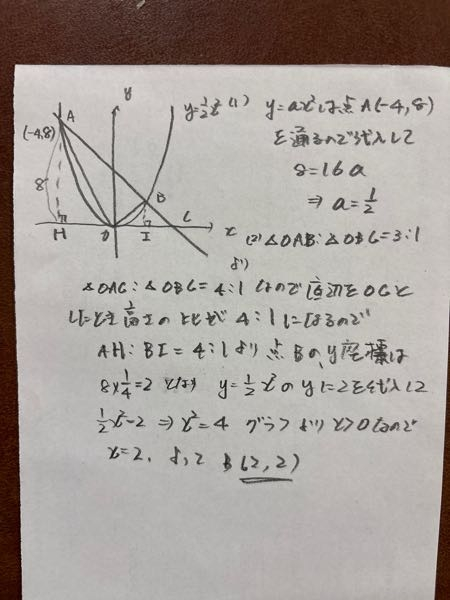 y
A
(-4,8)
8
H
O
I
B
C
x
y=1/2x² (1) y=ax²は点A(-4,8)
を通るので代入して
8=16a
⇒ a=1/2
(2) △OAB:△OBC=3:1
より
△OAC:△OBC=4:1なので底辺をOCと
したとき高さの比が4:1になるので
AH:BI=4:1より点Bのy座標は
8×1/4=2 となり y=1/2x²のyに2を代入して
1/2x²=2 ⇒ x²=4 グラフよりx>0なので
x=2, よって B(2,2)